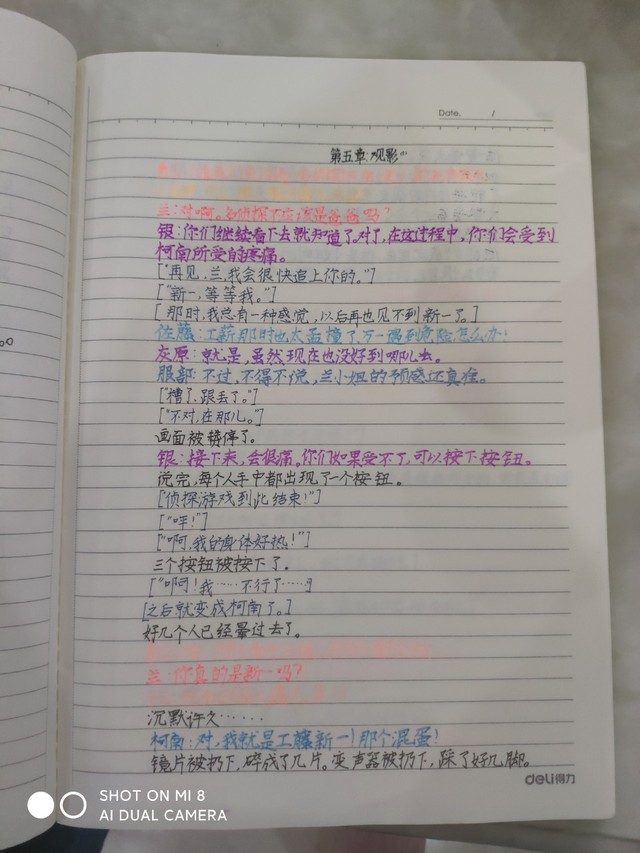 Date. /
第五章:观影
兰:对啊。名侦探不应该是爸爸吗?
银:你们继续看下去就知道了。对了,在这过程中,你们会受到
柯南所受的疼痛。
["再见,兰,我会很快追上你的。"]
["新一,等等我。"]
[那时,我总有一种感觉,以后再也见不到新一了。]
佐藤:工薪那时也太孟撞了,万一遇到危险怎么办!
灰原:就是,虽然现在也没好到哪儿去。
服部:不过,不得不说,兰小姐的预感还真准。
["糟了,跟丢了。"]
["不对,在那儿。"]
画面被暂停了。
银:接下来,会很痛。你们如果受不了,可以按下按钮。
说完,每个人手中都出现了一个按钮。
["侦探游戏到此结束!"]
["呯!"]
["啊,我的身体好热!"]
三个按钮被按下了。
["啊!我……不行了……"]
[之后就变成柯南了。]
好几个人已经晕过去了。
兰:你真的是新一吗?
沉默许久……
柯南:对,我就是工藤新一!那个混蛋!
镜片被扔下,碎成了几片。变声器被扔下,踩了好几脚。
deli得力
SHOT ON MI 8
AI DUAL CAMERA